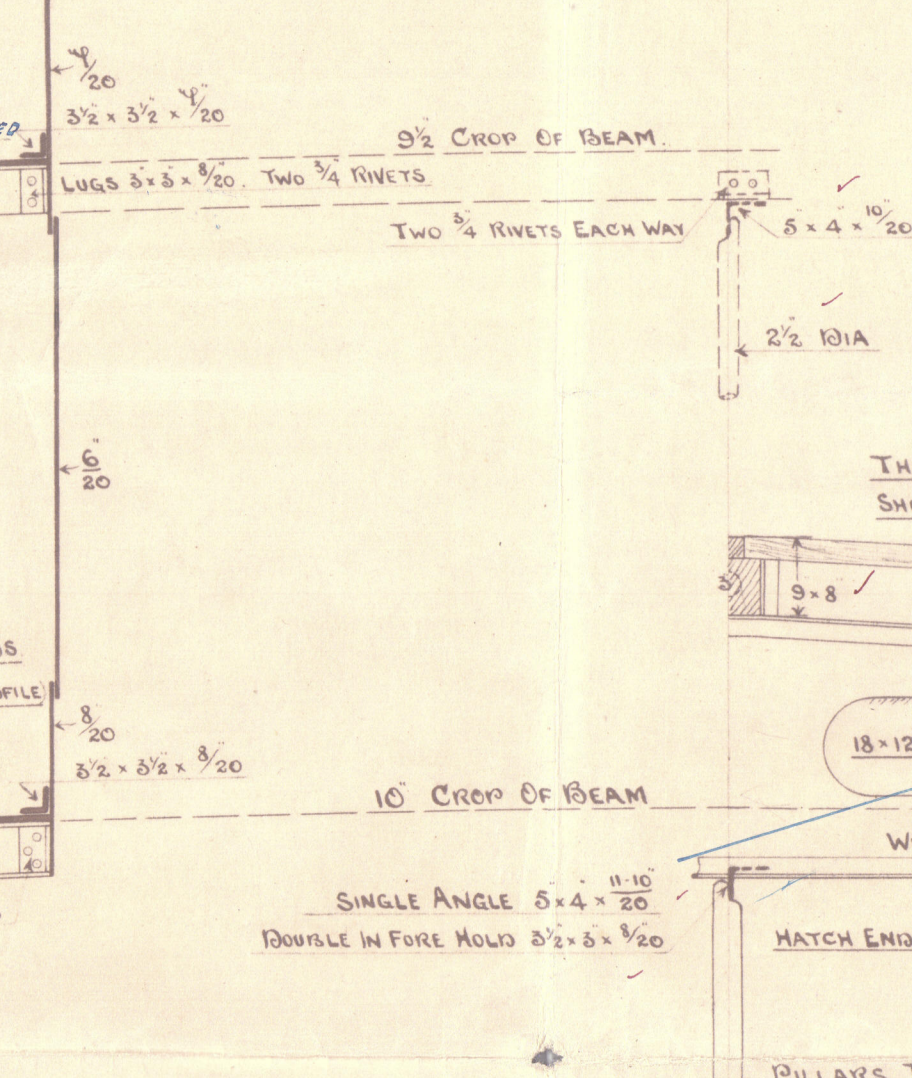 3½" × 3½" ×
9½" CROP OF BEAM.
LUGS 3" × 3" × 8/20". TWO ¾" RIVETS
TWO ¾" RIVETS EACH WAY
5" × 4" × 10/20
2½" DIA
6"/20
TH
SH
3"
9" × 8"
S.
FILE)
8/20"
3½" × 3½" × 8/20"
18 × 12
10" CROP OF BEAM
W
SINGLE ANGLE 5" × 4" × 11-10"/20
DOUBLE IN FORE HOLD 3½" × 3" × 8/20"
HATCH END
PILLARS